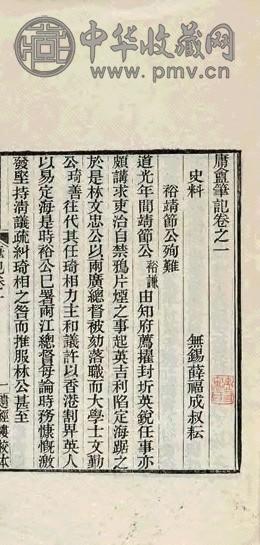 中华收藏网
www.pmv.cn
庸盦筆記卷之一
無錫薛福成叔耘
史料
裕靖節公殉難
道光年間靖節公裕謙由知府薦擢封圻英銳任事亦
頗講求吏治自禁鴉片煙之事起英吉利陷定海踞之
於是林文忠公以兩廣總督被劾落職而大學士文勤
公琦善往代其任琦相力主和議許以香港割畀英人
以易定海是時裕公已署兩江總督每論時務慷慨激
發堅持清議疏糾琦相之咎而推服林公甚至
一
遺經樓校本